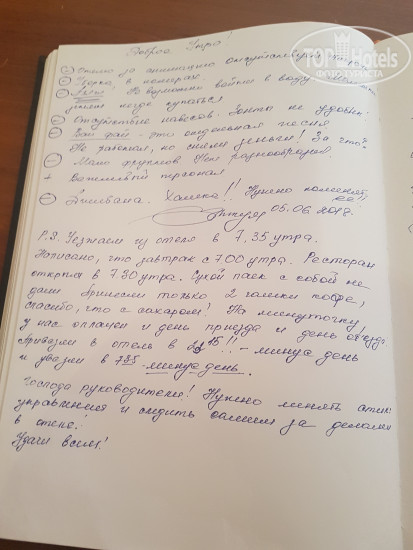 Доброе Утро!
TOPHotels
ФОТО ТУРИСТА
Отелю за анимацию
Грязь в номерах.
Невозможно войти в воду
негде купаться
Отсутствие навесов. Зонта не
Вай фай - это отдельная песня.
Не работал, но сняли деньги! За что?
Мало фруктов. Нет разнообразия
+ Вежливый персонал
Хамка!! Нужно поменять
ее!!
05.06.2018.
P.S. Уезжаем из отеля в 7,35 утра.
Написано, что завтрак с 7 00 утра. Ресторан
открыли в 7 30 утра. Сухой паек с собой не
дали. Принесли только 2 чашки кофе,
спасибо, что с сахаром! На минуточку,
у нас оплачен и день приезда и день отъезда
Привезли в отель в 15!! - минус день
и увезли в 7 35 - минус день.
Господа руководители! Нужно менять
управления и следить самим за делами
в отеле!
Удачи всем!